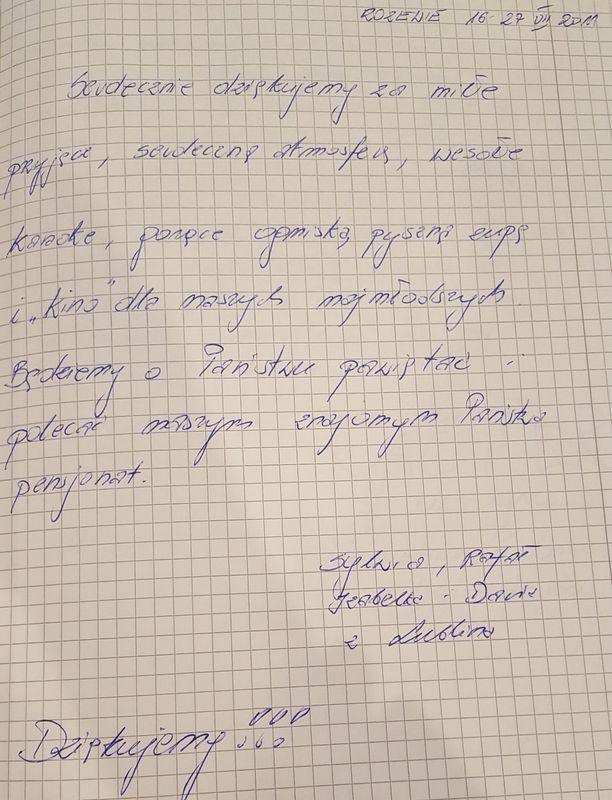 16-27 VII 2011
Serdecznie dziękujemy za miłe
przyjęcie, serdeczną atmosferę, wesołe
gorące ogniska, pyszną zupę
i „kino” dla naszych najmłodszych.
Będziemy o Państwu pamiętać i
polecać naszym znajomym Państwa
pensjonat.
Sylwia, Rafał
Izabelka i Daria
z Lublina
Dziękujemy!!!